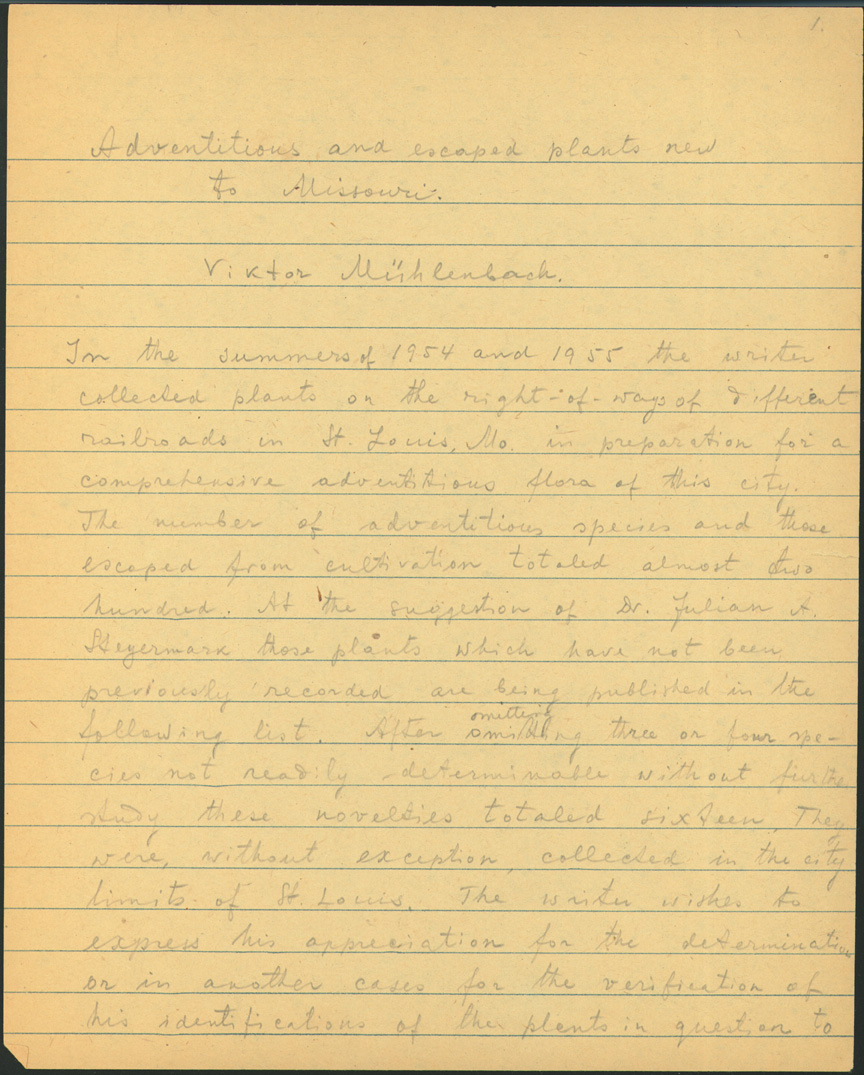 1.
Adventitious and escaped plants new
to Missouri.
Viktor Mühlenbach.
In the summers of 1954 and 1955 the writer
collected plants on the right-of-ways of different
railroads in St. Louis, Mo. in preparation for a
comprehensive adventitious flora of this city.
The number of adventitious species and those
escaped from cultivation totaled almost two
hundred. At the suggestion of Dr. Julian A.
Steyermark those plants which have not been
previously recorded are being published in the
omitting
following list. After omitting three or four spe-
cies not readily determinable without further
study these novelties totaled sixteen. They
were, without exception, collected in the city
limits of St. Louis. The writer wishes to
express his appreciation for the determination
or in another cases for the verification of
his identifications of the plants in question to